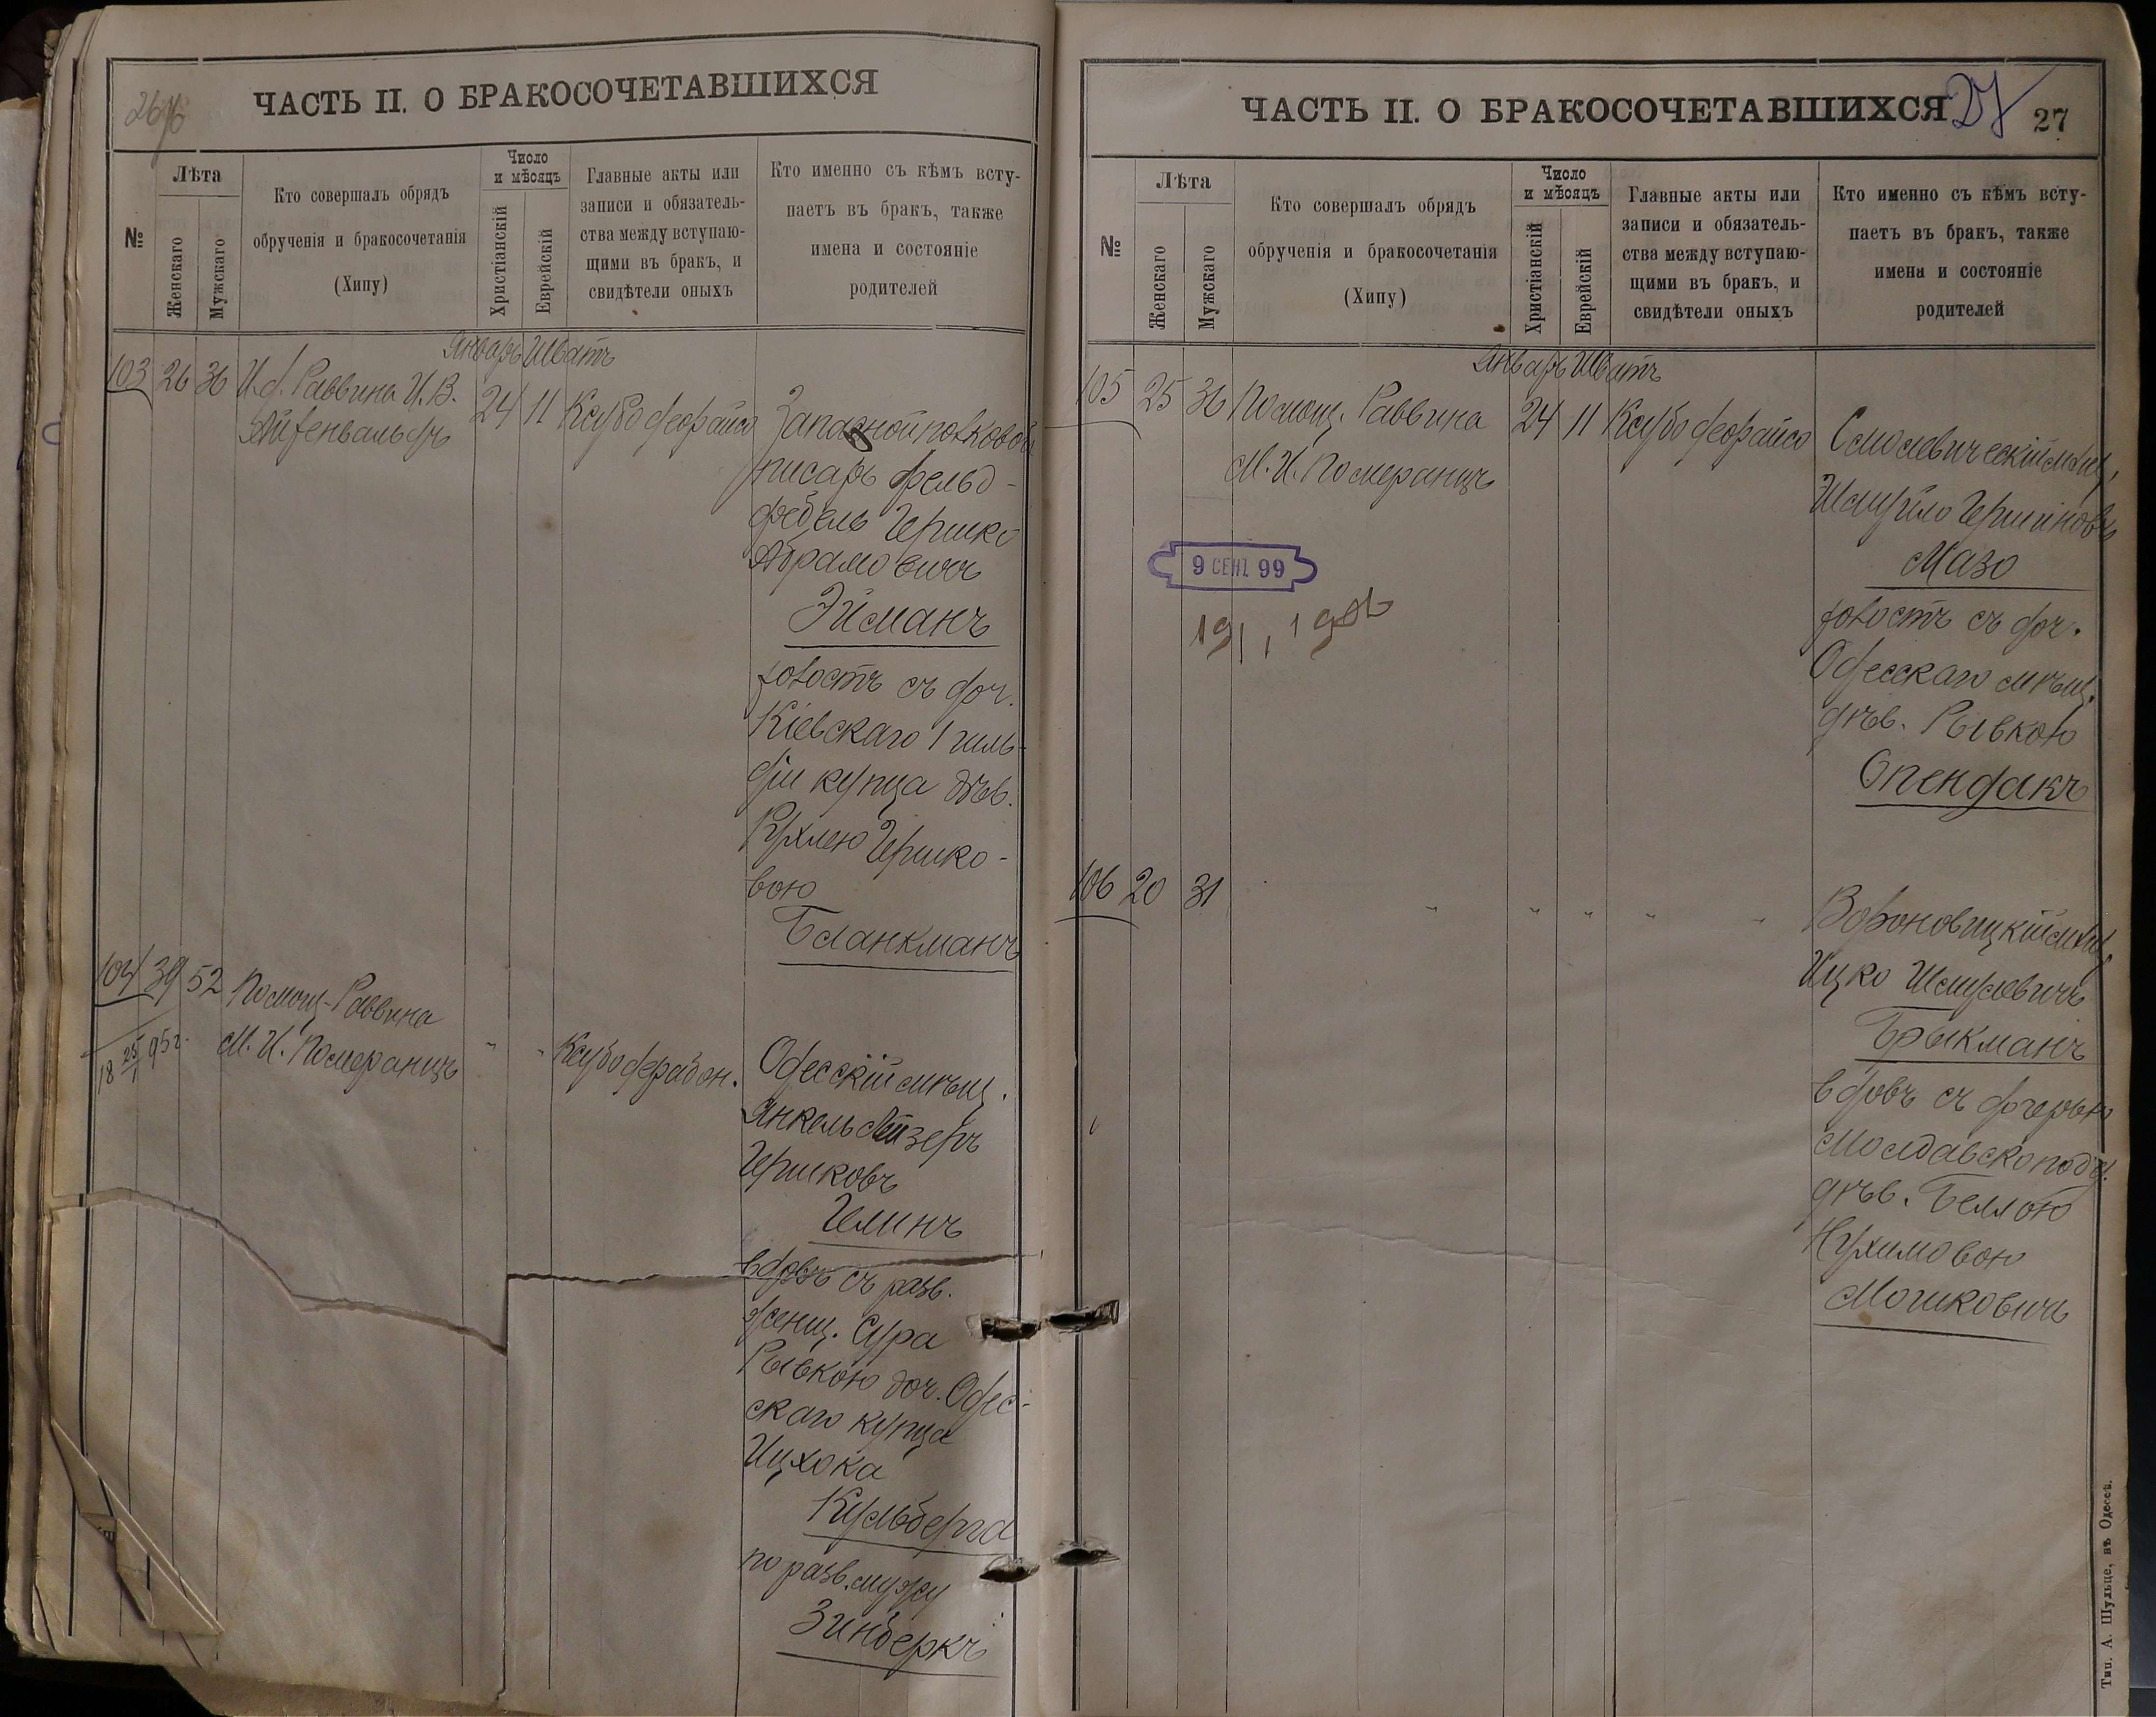 26 об
ЧАСТЬ II. О БРАКОСОЧЕТАВШИХСЯ
№
Лѣта
Женскаго
Мужскаго
Кто совершалъ обрядъ
обрученія и бракосочетанія
(Хипу)
Число
и мѣсяцъ
Христіанскій
Еврейскій
Главные акты или
записи и обязатель-
ства между вступаю-
щими въ бракъ, и
свидѣтели оныхъ
Кто именно съ кѣмъ всту-
паетъ въ бракъ, также
имена и состояніе
родителей
Январь Шватъ
103 26 36 И. д. Раввина И. В.
Айзенвальдъ
24 11 Ксубо деорайсо
Запасной полковой
писарь фельд-
фебель Гершко
Абрамовичъ
Эйманъ
холостъ съ доч.
Кіевскаго 1 гиль-
діи купца дѣв.
Рухлею Гершко-
вою
Бланкманъ
104 39 52 Помощ. Раввина
М. И. Померанцъ
18 25/1 95 г.
" " Ксубо дерабон.
Одесскій мѣщ.
Янкель Лейзеръ
Гершковъ
Гелинъ
вдовъ съ разв.
женщ. Сура
Рывкою доч. Одес-
скаго купца
Ицхока
Кульберга
по разв. мужу
Зинберкъ
ЧАСТЬ II. О БРАКОСОЧЕТАВШИХСЯ
27
27
№
Лѣта
Женскаго
Мужскаго
Кто совершалъ обрядъ
обрученія и бракосочетанія
(Хипу)
Число
и мѣсяцъ
Христіанскій
Еврейскій
Главные акты или
записи и обязатель-
ства между вступаю-
щими въ бракъ, и
свидѣтели оныхъ
Кто именно съ кѣмъ всту-
паетъ въ бракъ, также
имена и состояніе
родителей
Январь Шватъ
105 25 36 Помощ. Раввина
М. И. Померанцъ
24 11 Ксубо деорайсо
9 СЕНТ 99
Смолевическій мѣщ.
Шмуйло Гершиновъ
Мазо
холостъ съ доч.
Одесскаго мѣщ.
дѣв. Рывкою
Спендакъ
106 20 31
" " " " "
Вороновицкій мѣщ.
Ицко Шмулевичъ
Брыкманъ
вдовъ съ дочерью
Молдавскопод.
дѣв. Беллою
Нухимовою
Мошковичъ
Тип. А. Шульце, въ Одессѣ.